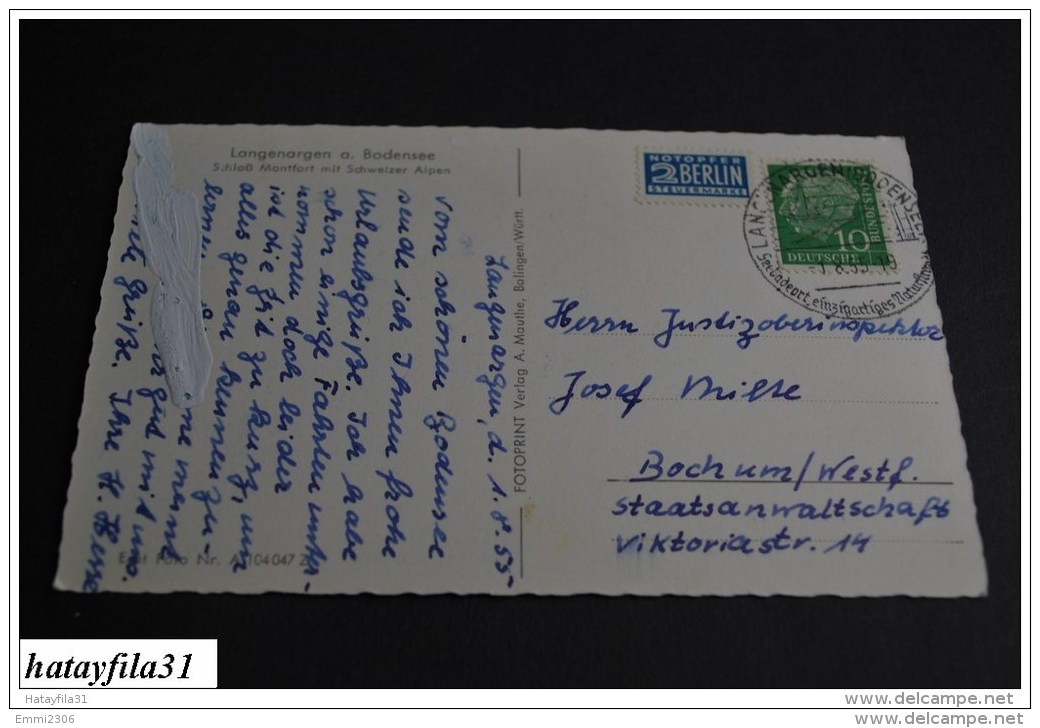 Langenargen a. Bodensee
Schloß Montfort mit Schweizer Alpen
Langenargen, d. 1. 8. 55
Vom schönen Bodensee
sende ich Ihnen frohe
Urlaubsgrüße. Ich habe
schon einige Fahrten unter-
nommen doch leider
ist die Zeit zu kurz, um
alles genau kennen zu-
lernen.
meine
gut mit uns.
Grüße. Ihre H.
Echt Foto Nr. A 104 047
FOTOPRINT Verlag A. Mauthe, Balingen/Württ.
NOTOPFER
2 BERLIN
STEUERMARKE
10
DEUTSCHE
BUNDESPOST
LANGENARGEN/BODENSEE
8.55.19
Seebadeort, einzigartiges Naturstrand
Herrn Justizoberinspektor
Josef Milse
Bochum/Westf.
Staatsanwaltschaft
Viktoriastr. 14
hatayfila31
Hatayfila31
Emmi2306
www.delcampe.net
www.delcampe.net